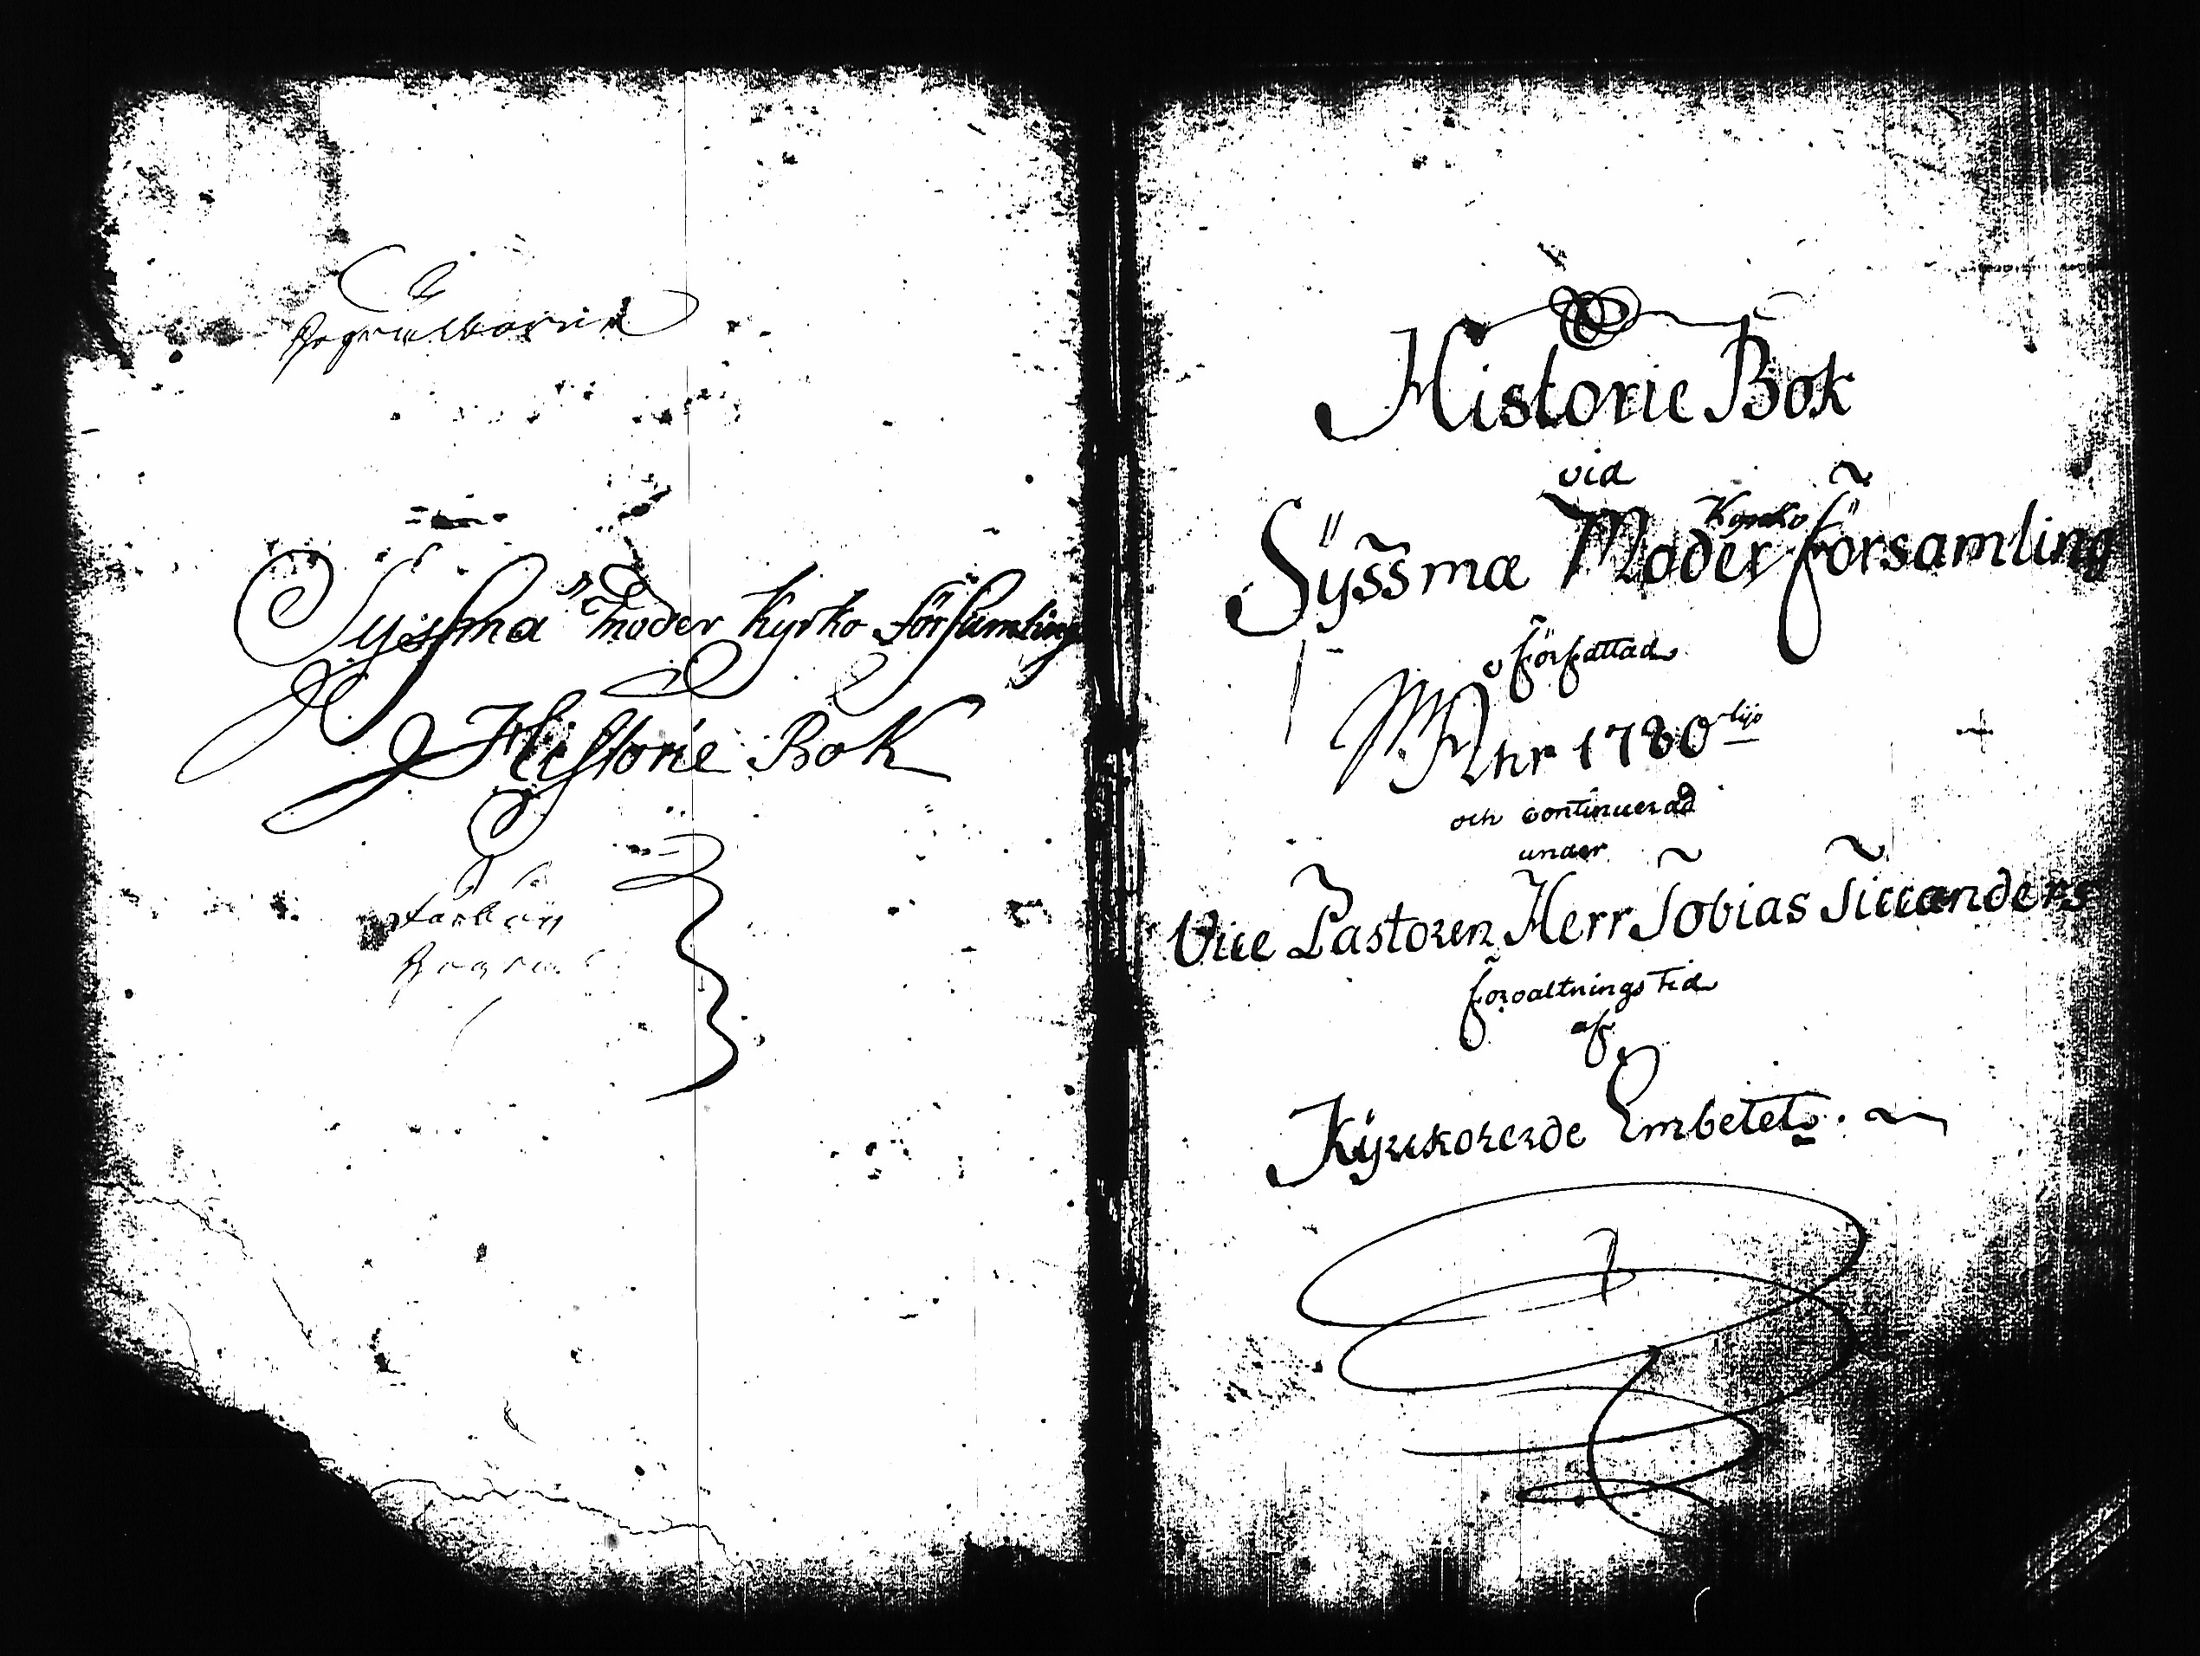 Syssma Moder Kyrko församling
Historie Bok
Historie Bok
vid
Kyrko
Sÿssma Moder församling
författad
Åhr 1780
och continuerad
under
Vice Pastoren Herr Tobias Ticcanders
förvaltnings Tid
af
Kÿrckoherde Embetet.